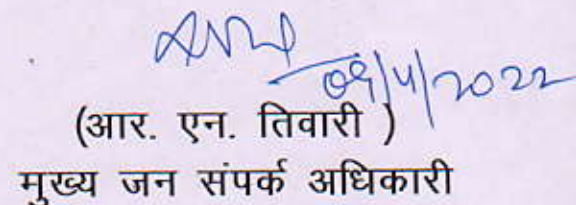 09/4/2022
(आर. एन. तिवारी )
मुख्य जन संपर्क अधिकारी